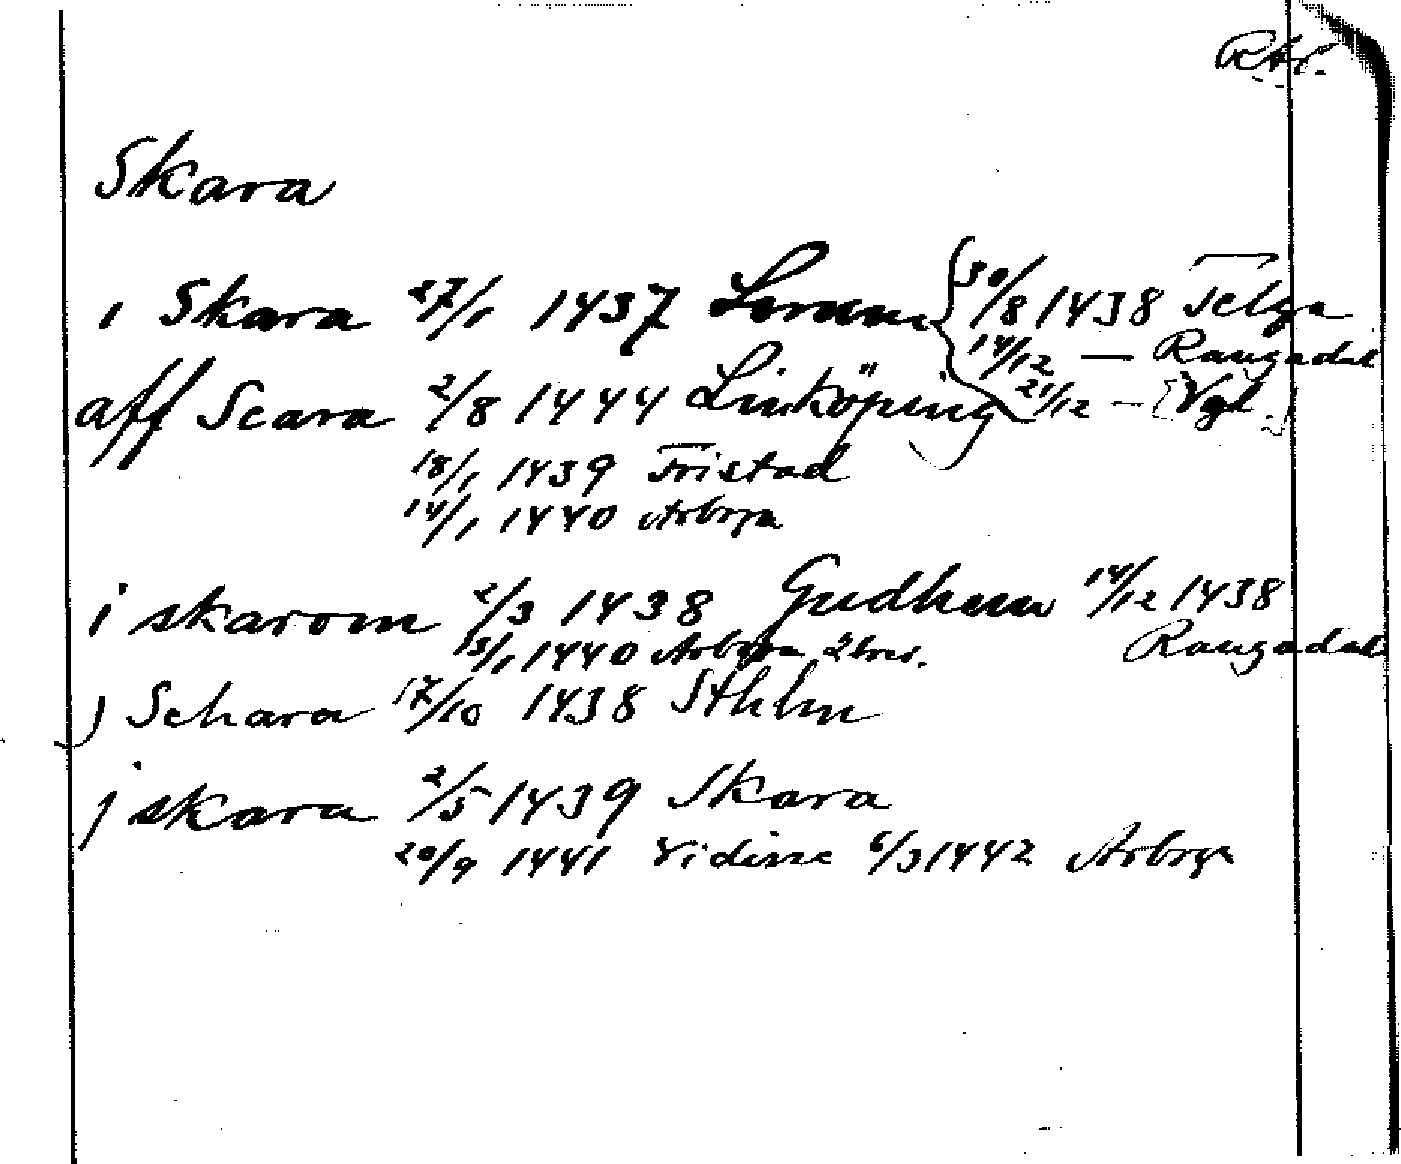 Skara
i Skara 27/1 1437 30/8 1438 Telga
14/12 — Raugadal
aff Scara 2/8 1444 Linköping 21/12 — [Vgl.]
18/1 1439 Fristad
14/1 1440 Arboga
i skarom 2/3 1438 Gudhem 14/12 1438
13/1 1440 Arboga 2 brev. Raugadal
j Schara 17/10 1438 Sthlm
j skara 2/5 1439 Skara
20/9 1441 6/3 1442 Arboga